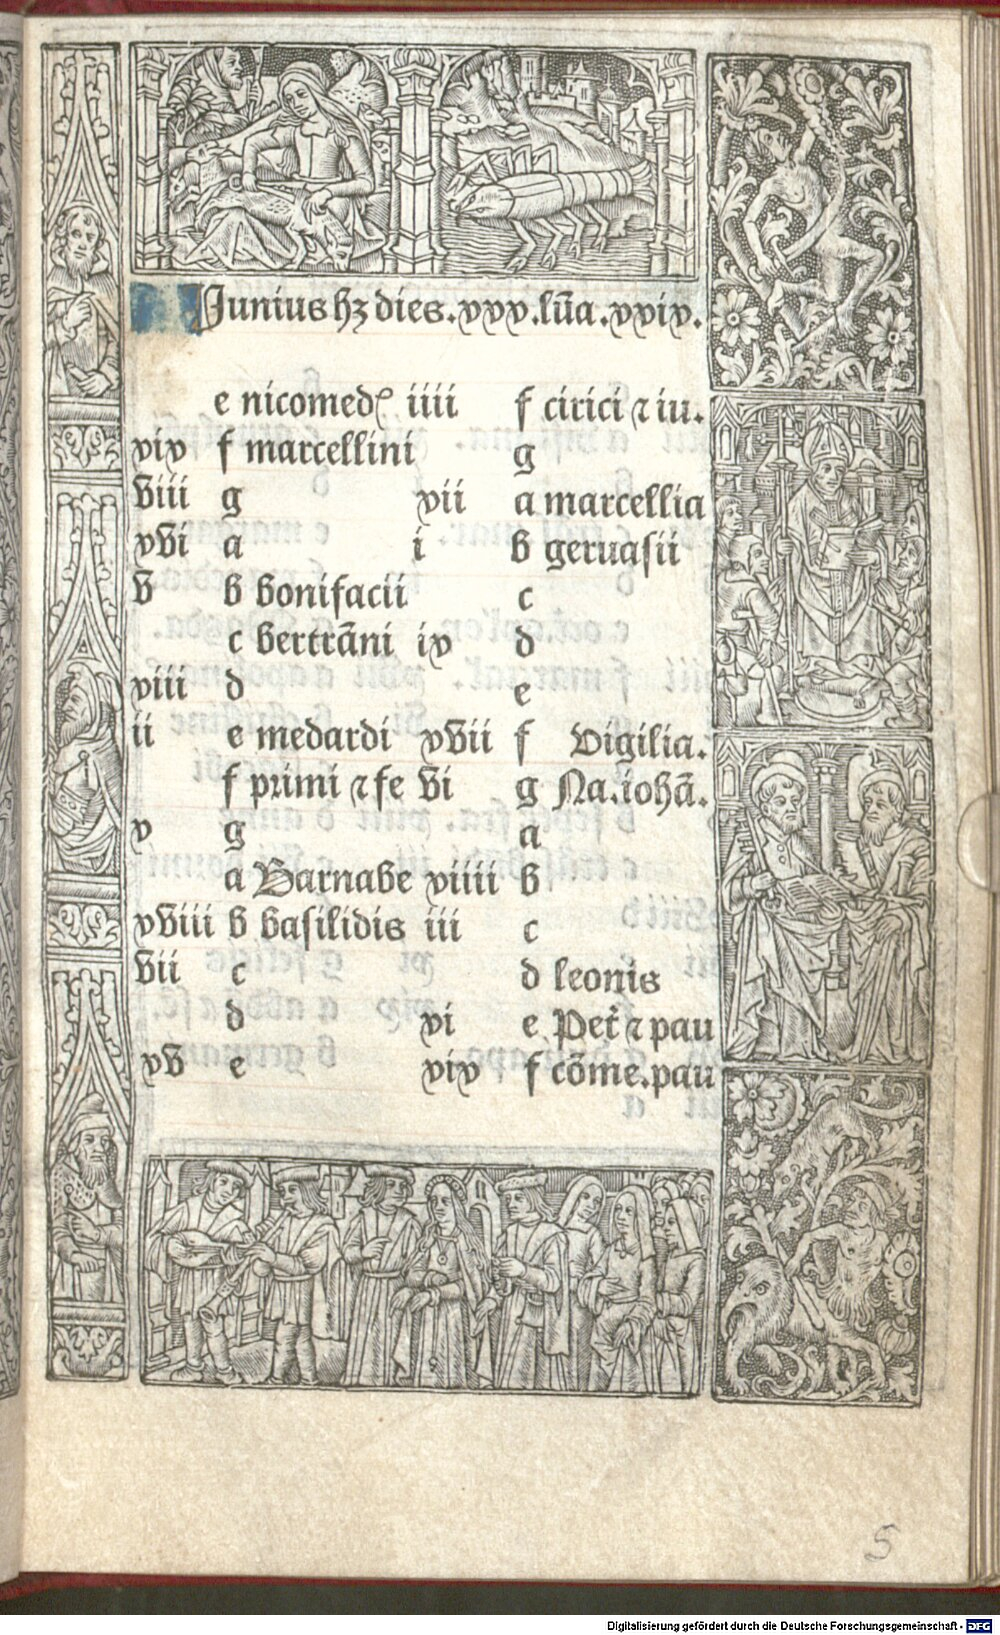 Junius hꝫ dies.xxx.lũa.xxix.
e nicomedꝭ
xix f marcellini
viii g
xvi a
v b bonifacii
c bertrãni
xiii d
ii e medardi
f primi ⁊ fe
x g
a Barnabe
xviii b basilidis
vii c
d
xv e
iiii f cirici ⁊ iu.
g
xii a marcellia
i b geruasii
c
ix d
e
xvii f Vigilia.
vi g Na.iohã.
a
xiiii b
iii c
d leonis
xi e Pet̃ ⁊ pau
xix f cõme.pau
5
Digitalisierung gefördert durch die Deutsche Forschungsgemeinschaft - DFG